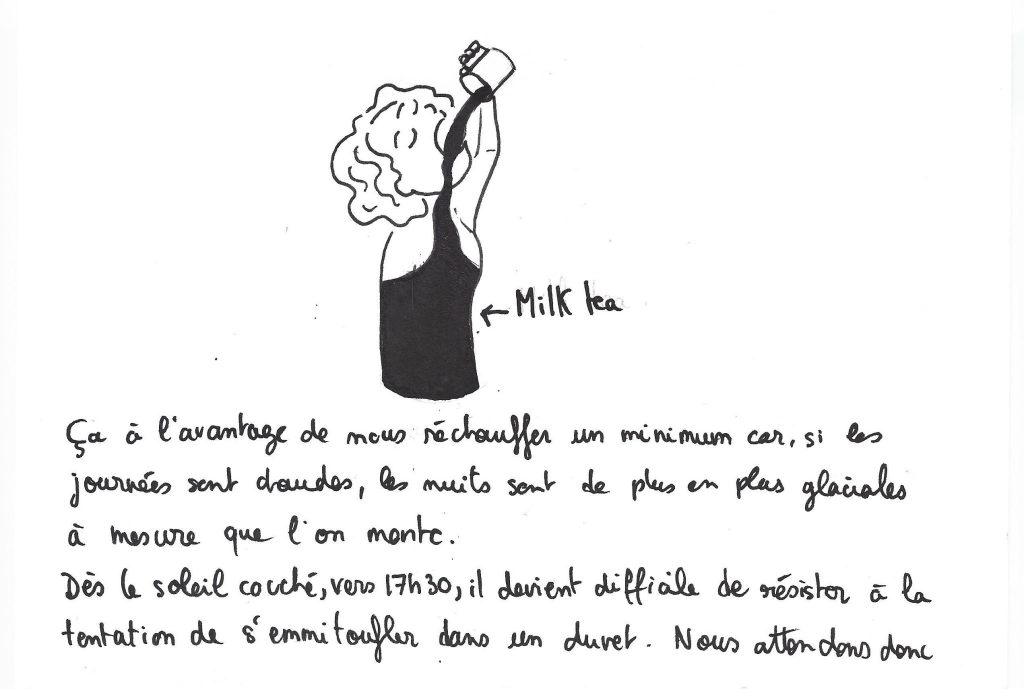 ← Milk tea
Ça à l'avantage de nous réchauffer un minimum car, si les
journées sont chaudes, les nuits sont de plus en plus glaciales
à mesure que l'on monte.
Dès le soleil couché, vers 17h30, il devient difficile de résister à la
tentation de s'emmitoufler dans un duvet. Nous attendons donc